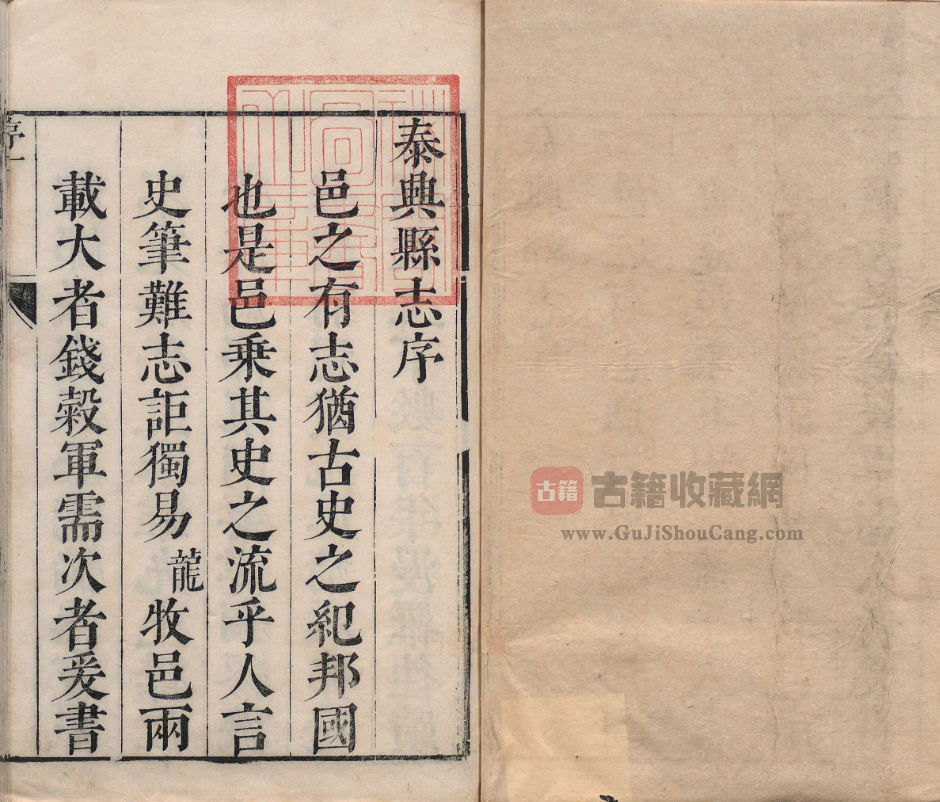 泰興縣志序
邑之有志猶古史之紀邦國
也是邑乗其史之流乎人言
史筆難志詎獨易龍牧邑兩
載大者錢榖軍需次者爰書
序一
古籍
古籍收藏網
www.GuJiShouCang.com